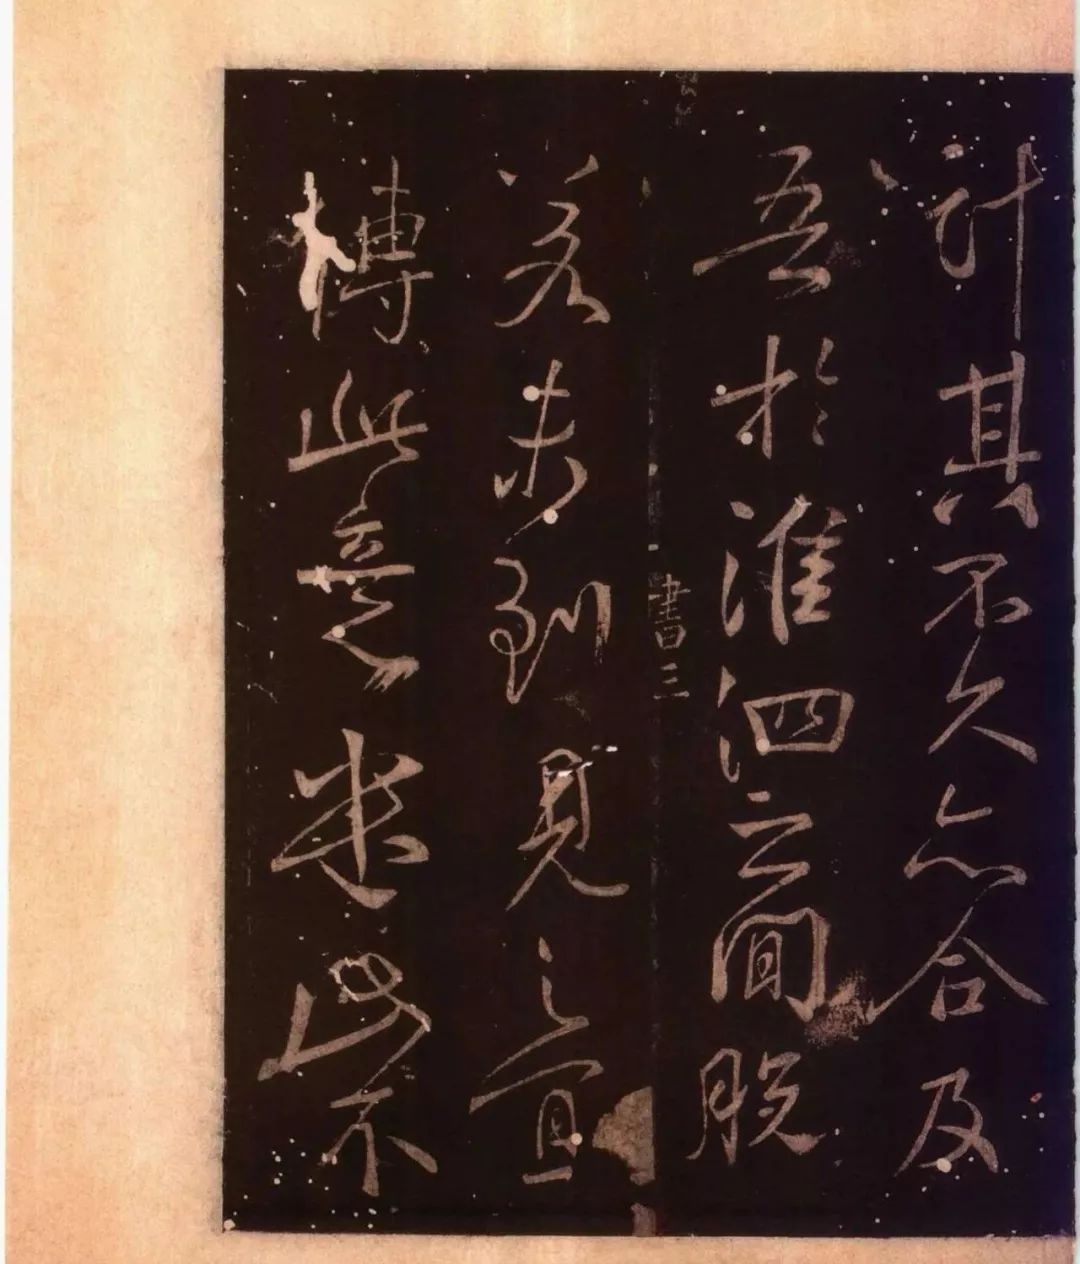 計其不久亦合及
吾於淮泗之間脫
書三
若未到見之宜
傅此意叔此不